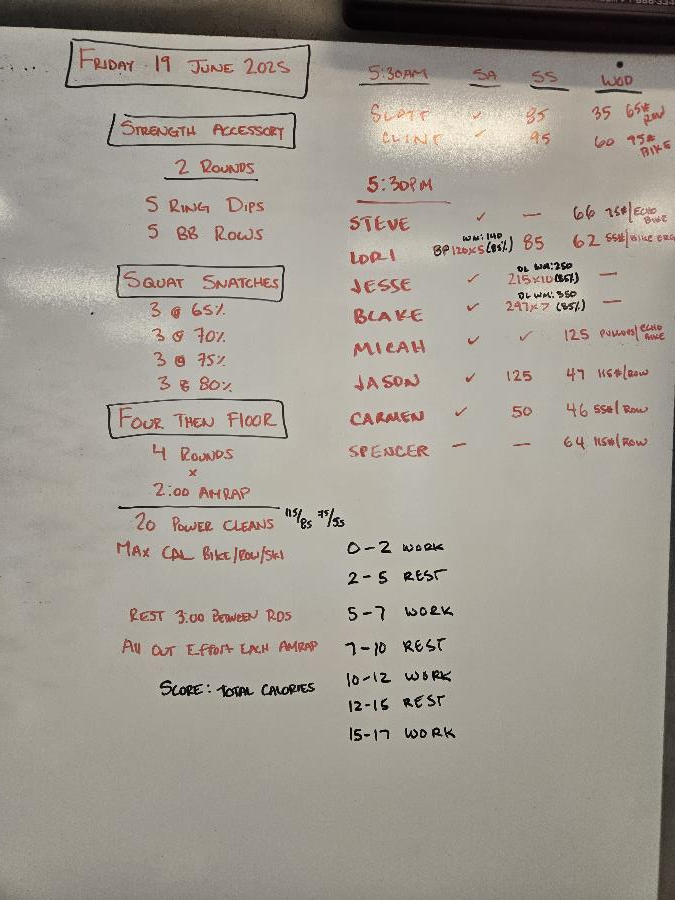 FRIDAY 19 JUNE 2025
STRENGTH ACCESSORY
2 ROUNDS
5 RING DIPS
5 BB ROWS
SQUAT SNATCHES
3 @ 65%
3 @ 70%
3 @ 75%
3 @ 80%
FOUR THEN FLOOR
4 ROUNDS
x
2:00 AMRAP
20 POWER CLEANS 115/85 75/55
MAX CAL BIKE/ROW/SKI
REST 3:00 BETWEEN RDS
All OUT EFFORT EACH AMRAP
SCORE: TOTAL CALORIES
5:30AM SA SS WOD
SCOTT ✓ 85 35 65# ROW
CLINT ✓ 95 60 95# BIKE
5:30PM
STEVE ✓ — 66 75#/ECHO BIKE
LORI WM: 140 BP 120x5 (85%) 85 62 55#/BIKE ERG
JESSE ✓ DL WM: 250 215x10 (85%) —
BLAKE ✓ DL WM: 350 297x7 (85%) —
MICAH ✓ ✓ 125 /ECHO BIKE
JASON ✓ 125 47 115#/ROW
CARMEN ✓ 50 46 55#/ROW
SPENCER — — 64 115#/ROW
0-2 WORK
2-5 REST
5-7 WORK
7-10 REST
10-12 WORK
12-15 REST
15-17 WORK